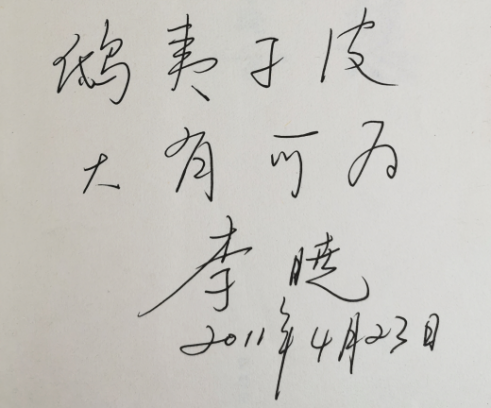 鸱夷子皮
大有可为
李晓
2011年4月23日